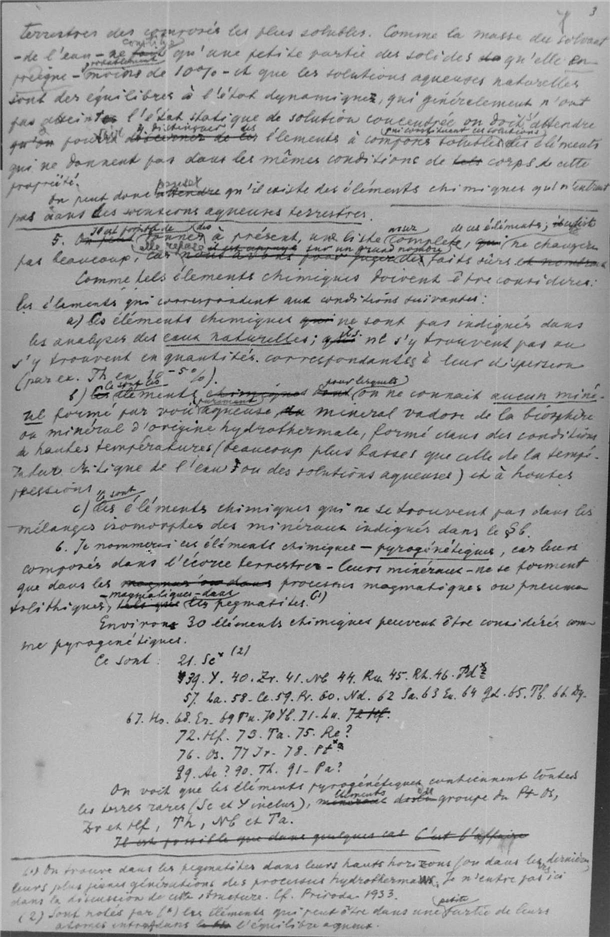 3
terrestres des composés les plus solubles. Comme la masse du solvant
- de l'eau - ne contient qu'une petite partie des solides qu'elle
- probablement moins de 10% - et que les solutions aqueuses naturelles
sont des équilibres à l'état dynamique, qui généralement n'ont
pas atteint l'état statique de solution concentrée on doit attendre
éléments à composés solubles des éléments qui constituent ces solutions
qui ne donnent pas dans les mêmes conditions de corps de cette
propriété.
On peut donc penser qu'il existe des éléments chimiques qui n'entrent
pas dans les solutions aqueuses terrestres.
5. à présent, une liste assez complète, de ces éléments, ne changera
pas beaucoup, car elle repose sur un grand nombre des faits sûrs
Comme tels éléments chimiques doivent être considérés:
les éléments qui correspondent aux conditions suivantes:
a) les éléments chimiques ne sont pas indiqués dans
les analyses des eaux naturelles; ils ne s'y trouvent pas ou
s'y trouvent en quantités correspondantes à leur dispersion
(par ex. Th en 10 -5 %).
b) ce sont les éléments pour lesquels on ne connait aucun miné-
ral formé par voie aqueuse minéral vadose de la biosphère
ou minéral d'origine hydrothermale, formé dans des conditions
à hautes températures (beaucoup plus basses que celle de la tempé-
rature critique de l'eau ou des solutions aqueuses) et à hautes
pressions
c) ce sont des éléments chimiques qui ne se trouvent pas dans les
mélanges isomorphes des minéraux indiqués dans le § 6.
6. Je nommerai ces éléments chimiques - pyrogénétiques, car leurs
composés dans l'écorce terrestre - leurs minéraux - ne se forment
que dans les processus magmatiques ou pneuma-
tolithiques, - magmatiques - dans les pegmatites. (1)
Environ 30 éléments chimiques peuvent être considérés com-
me pyrogénétiques.
Ce sont: 21. Sc x (2)
39. Y. 40. Zr. 41. Nb 44. Ru. 45. Rh. 46. Pd x
57. La. 58. Ce. 59. Pr. 60. Nd. 62 Sa. 63 Eu. 64 Gd. 65. Tb. 66. Dy.
67. Ho. 68. Er. 69 Tu. 70 Yb. 71. Lu. 72 Hf.
72. Hf. 73. Ta. 75. Re?
76. Os. 77 Ir. 78. Pt x
89. Ac? 90. Th. 91. Pa?
On voit que les éléments pyrogénétiques contiennent toutes
les terres rares (Sc et Y inclus), éléments du groupe du Pt-Os,
Zr et Hf, Th, Nb et Ta.
Il est possible que dans quelques cas c'est l'affaire
(1) On trouve dans les pegmatites dans leurs hauts horizons (ou dans les dernières)
leurs plus jeunes générations des processus hydrothermaux. Je n'entre pas ici
dans la discussion de cette structure. Cf. Priroda 1933.
(2) Sont notés par (x) les éléments qui peut être dans une petite partie de leurs
atomes entrent dans l'équilibre aqueux.